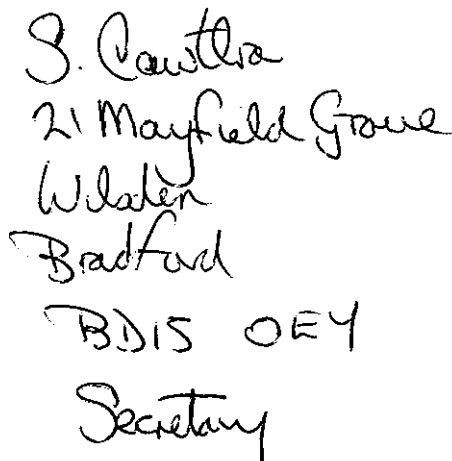 S. Cawthra
21 Mayfield Grove
Wilsden
Bradford
BD15 0EY
Secretary